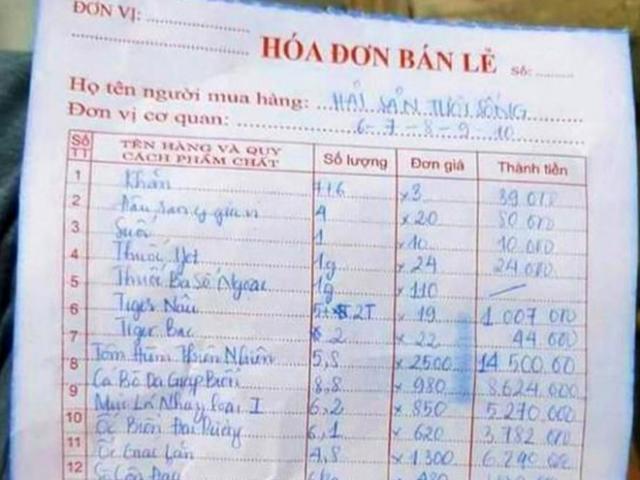 ĐƠN VỊ:
HÓA ĐƠN BÁN LẺ Số:
Họ tên người mua hàng: HẢI SẢN TƯƠI SỐNG
Đơn vị cơ quan: 6-7-8-9-10
Số TT TÊN HÀNG VÀ QUY CÁCH PHẨM CHẤT Số lượng Đơn giá Thành tiền
1 Khăn 7+6 x3 39.000
2 4 x20 80.000
3 Suối 1 x10 10.000
4 Thuốc Jet 1g x24 24.000
5 Thuốc Ba Số Ngoại 1g x110
6 Tiger Nâu 2T x19 1.007.000
7 Tiger Bạc 2 x22 44.000
8 Tôm Hùm Thiên Nhiên 5,8 x2500 14.500.00
9 Cá Bò Da Giáp Biển 8,8 x980 8.624.000
10 Mực Lá Nháy loại I 6,2 x850 5.270.000
11 Ốc Biển Đại Dương 6,1 x620 3.782.000
12 Ốc 4,8 x1300